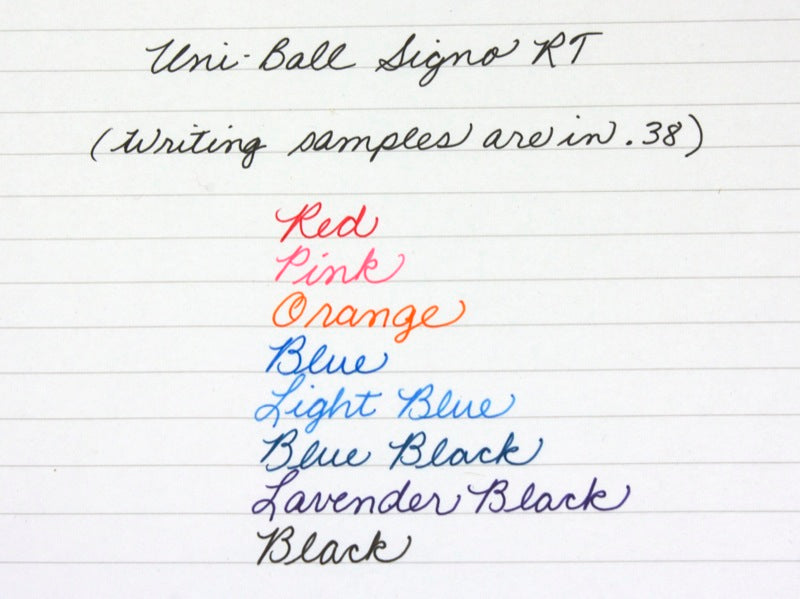 Uni-Ball Signo RT
(Writing samples are in .38)
Red
Pink
Orange
Blue
Light Blue
Blue Black
Lavender Black
Black